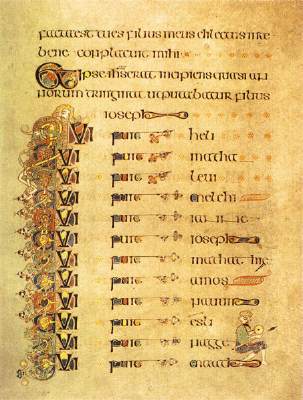 facta est tu es filius meus dilectus in te
bene conplacuit mihi
Et ipse ihs erat incipiens quasi an
norum triginta ut putabatur filius
ioseph
QUI fuit heli
QUI fuit matha
QUI fuit levi
QUI fuit melchi
QUI fuit
QUI fuit ioseph
QUI fuit mathathie
QUI fuit amos
QUI fuit nauum
QUI fuit esli
QUI fuit nagge
QUI fuit